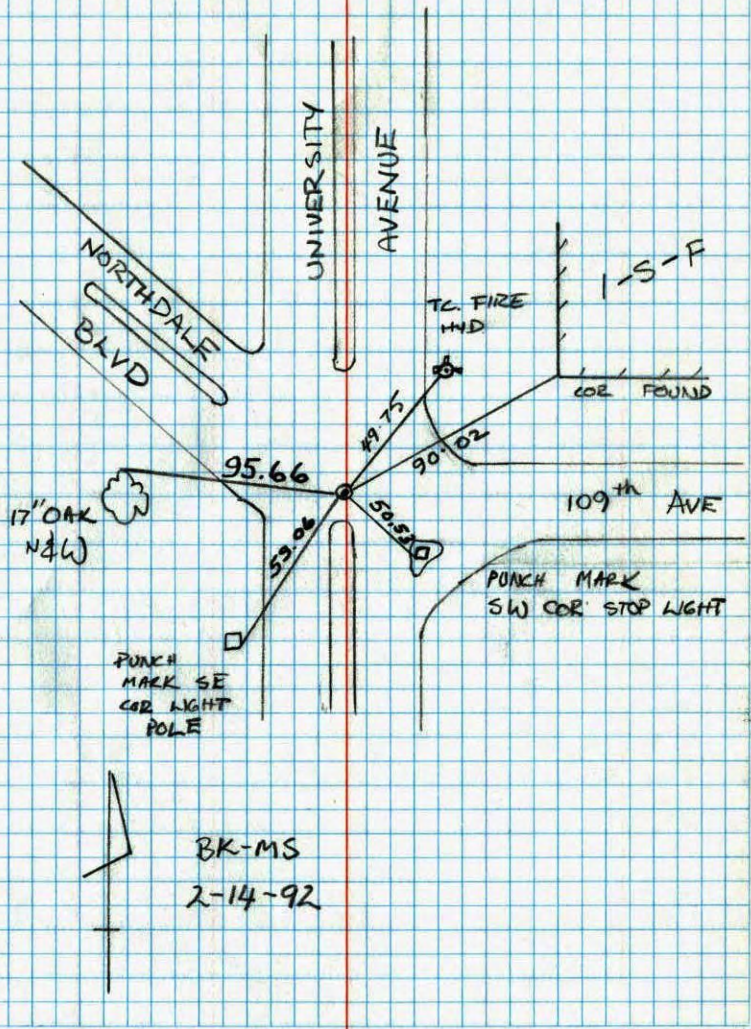 UNIVERSITY
AVENUE
NORTHDALE
BLVD
1-S-F
T.C. FIRE
HYD
COR FOUND
49.75
90.02
95.66
50.53
109th AVE
17" OAK
N&W
PUNCH MARK
SW COR STOP LIGHT
PUNCH
MARK SE
COR LIGHT
POLE
BK-MS
2-14-92